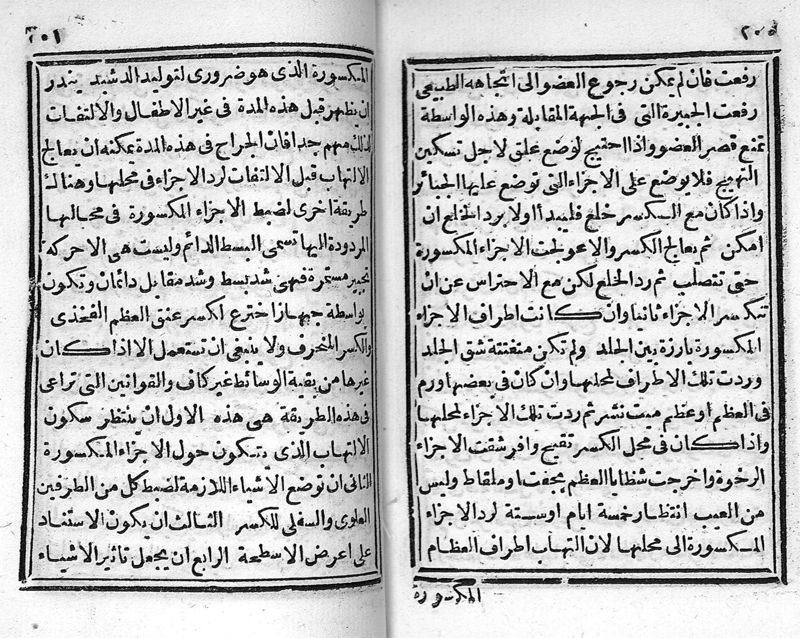 ٢٠٥
رفعت فان لم يمكن رجوع العضو الى اتجاهه الطبيعى
رفعت الجبيرة التى فى الجهة المقابلة وهذه الواسطة
تمنع قصر العضو واذا احتيج لوضع علق لاجل تسكين
التهيج فلا يوضع على الاجزاء التى توضع عليها الجبائر
واذا كان مع الكسر خلع فليبدأ اولا برد الخلع ان
امكن ثم يعالج الكسر والاعولجت الاجزاء المكسورة
حتى تتصلب ثم رد الخلع لكن مع الاحتراس عن ان
تنكسر الاجزاء ثانيا وان كانت اطراف الاجزاء
المكسورة بارزة بين الجلد ولم تكن متفتتة شق الجلد
وردت تلك الاطراف لمحلها وان كان فى بعضها ورم
فى العظم او عظم ميت نشر ثم ردت تلك الاجزاء لمحلها
واذا كان فى محل الكسر تقيح وافر شقت الاجزاء
الرخوة واخرجت شظايا العظم بجفت او ملقاط وليس
من العيب انتظار خمسة ايام او ستة لرد الاجزاء
المكسورة الى محلها لان التهاب اطراف العظام
المكسورة
٢٠٦
المكسورة الذى هو ضرورى لتوليد الدشبد يندر
ان يظهر قبل هذه المدة فى غير الاطفال والالتفات
لذلك مهم جدا فان الجراح فى هذه المدة يمكنه ان يعالج
الالتهاب قبل الالتفات لرد الاجزاء فى محلها وهناك
طريقة اخرى لضبط الاجزاء المكسورة فى محالها
المردودة اليها تسمى البسط الدائم وليست هى الا حركة
تجبير مستمرة فهى شد بسط وشد مقابل دائمان وتكون
بواسطة جهاز اخترع لكسر عنق العظم الفخذى
والكسر المنحرف ولا ينبغى ان تستعمل الا اذا كان
غيرها من بقية الوسائط غير كاف والقوانين التى تراعى
فى هذه الطريقة هى هذه الاول ان ينتظر سكون
الالتهاب الذى يتكون حول الاجزاء المنكسورة
الثانى ان توضع الاشياء اللازمة لضبط كل من الطرفين
العلوى والسفلى للكسر الثالث ان يكون الاستناد
على اعرض الاسطحة الرابع ان يجعل تاثير الاشياء